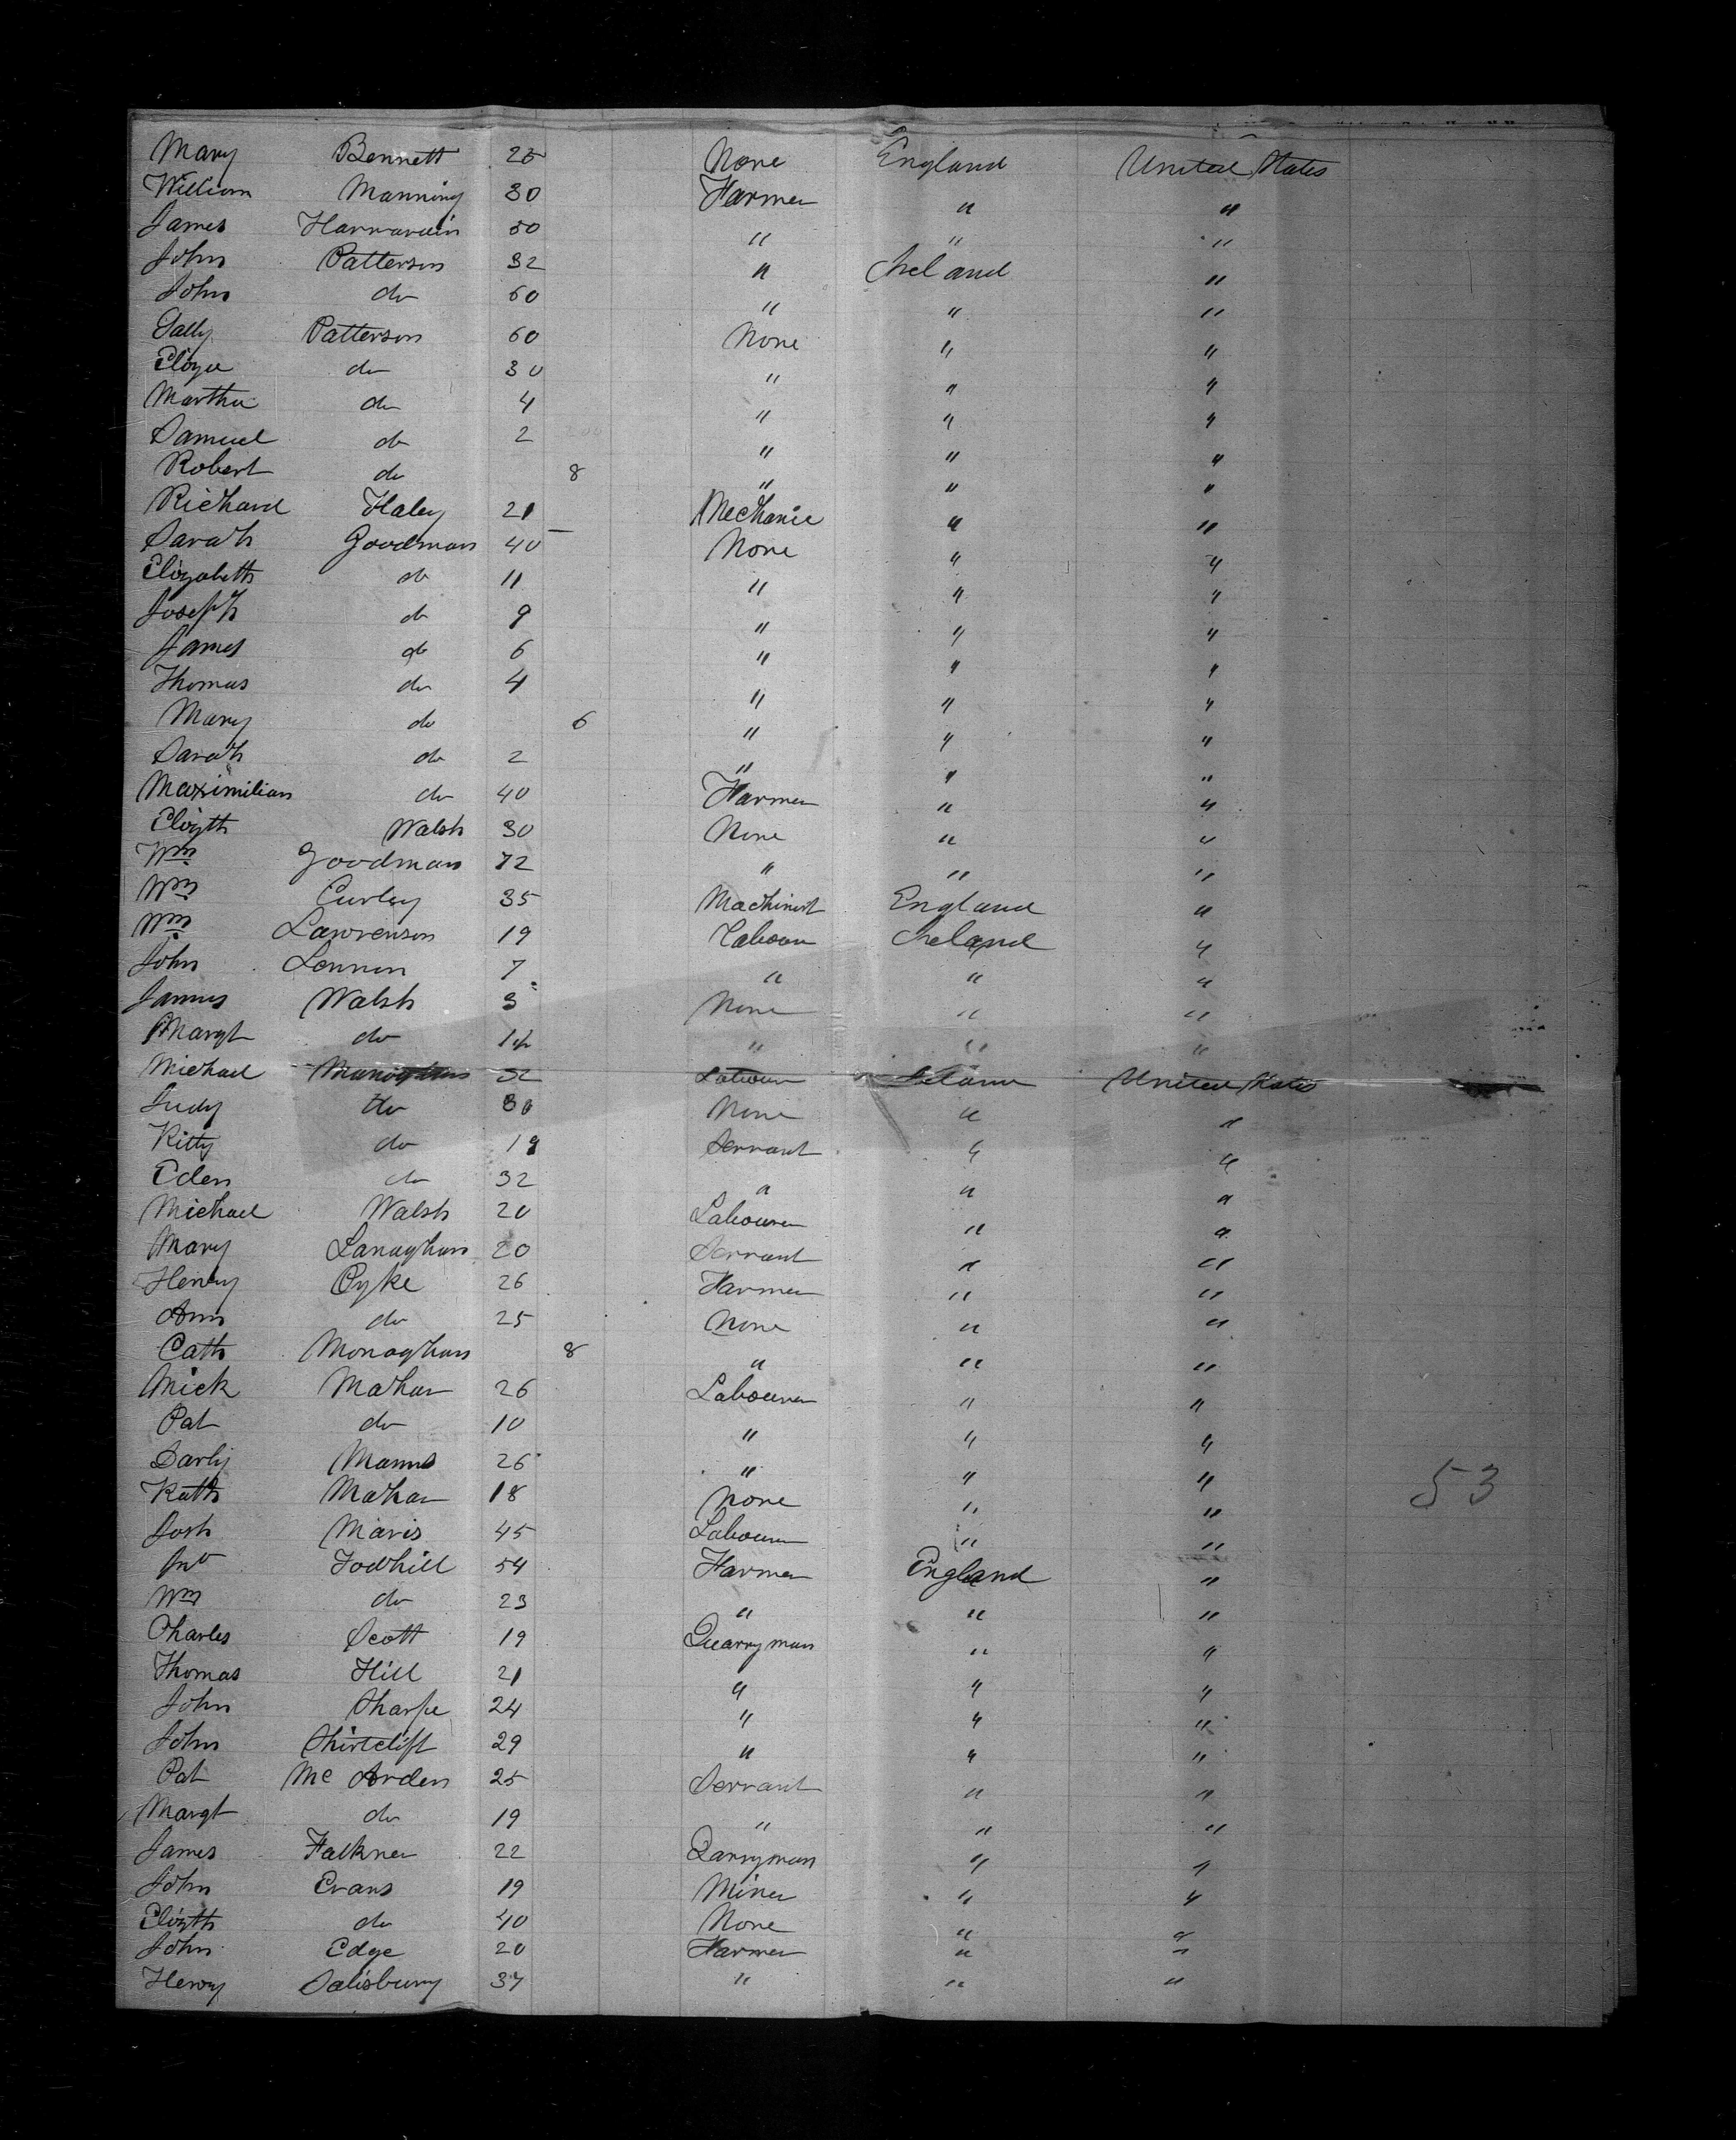 Mary Bennett 25 None England United States
William Manning 30 Farmer " "
James 50 " " "
John Patterson 32 " Ireland "
John do 60 " " "
Sally Patterson 60 None " "
Eliza do 30 " " "
Martha do 4 " " "
Samuel do 2 " " "
Robert do 8 " " "
Richard Haley 21 Mechanic " "
Sarah Goodman 40 None " "
Elizabeth do 11 " " "
Joseph do 9 " " "
James do 6 " " "
Thomas do 4 " " "
Mary do 6 " " "
Sarah do 2 " " "
Maximilian do 40 Farmer " "
Elizth Walsh 30 None " "
Wm Goodman 72 " " "
Wm Curley 35 Machinist England "
Wm Lawrenson 19 Labour Ireland "
John Lennon 7 " " "
James Walsh 3 None " "
Margt do " " "
Michael 32 Labour Ireland United States
Judy do 30 None " "
Kitty do 19 Servant " "
Eden do 32 " " "
Michael Walsh 20 Labourer " "
Mary Lanaghan 20 Servant " "
Henry Pyke 26 Farmer " "
Ann do 25 None " "
Cath Monaghan 8 " " "
Mick Mahar 26 Labourer " "
Pat do 10 " " "
Darby Manns 26 " " "
Kath Mahar 18 None " "
Josh Maris 45 Labour " "
Jno Todhill 54 Farmer England "
Wm do 23 " " "
Charles Scott 19 Quarryman " "
Thomas Hill 21 " " "
John Sharpe 24 " " "
John Shirtclift 29 " " "
Pat Mc Arden 25 Servant " "
Margt do 19 " " "
James Falkner 22 Qarryman " "
John Evans 19 Miner " "
Elizth do 40 None " "
John Edge 20 Farmer " "
Henry Salisbury 37 " " "
53